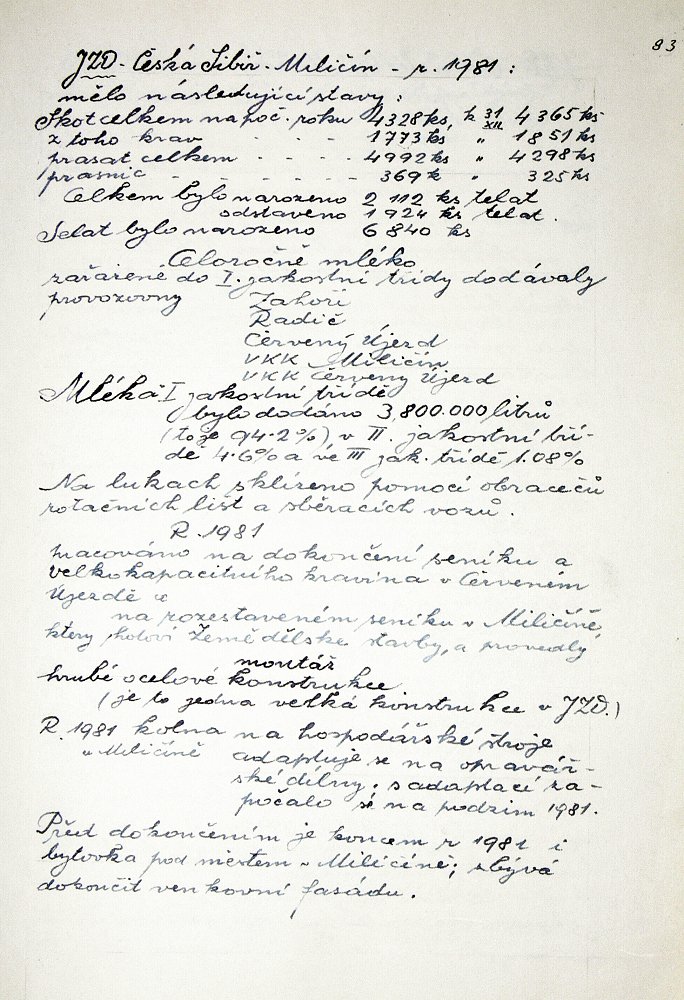 83
JZD - Česká Sibiř - Miličín - r. 1981 :
mělo následující stavy :
Skot celkem na poč. roku 4328 ks, k 31 XII. 4365 ks
z toho krav - - - - 1773 ks, " 1851 ks
prasat celkem - - - - 4992 ks " 4298 ks
prasnic - - - - - 369 k " 325 ks
Celkem bylo narozeno 2 112 ks telat
odstaveno 1 924 ks telat.
Selat bylo narozeno 6 840 ks
Celoročně mléko
zařazené do I. jakostní třídy dodávaly
provozovny Zahoří
Radič
Červený Újezd
VKK Miličín
VKK Červený Újezd
Mléka I jakostní třídě
bylo dodáno 3,800.000 litrů
(to je 94.2%) v II. jakostní tří-
dě 4.6% a ve III jak. třídě 1.08%
Na lukach sklízeno pomocí obracečů
rotačních lišt a sběracích vozů.
R. 1981
pracováno na dokončení seníku a
velkokapacitního kravína v Červeném
Újezdě a
na rozestaveném seníku v Miličíně,
ktery hotoví Zemědělské stavby, a provedly
montáž
hrubé ocelové konstrukce
(je to jedna velká konstrukce v JZD.)
R. 1981 kolna na hospodářské stroje
v Miličíně adaptuje se na opravář-
ské dílny; s adaptací za-
počalo se na podzim 1981.
Před dokončením je koncem r 1981 i
bytovka pod městem v Miličíně; zbývá
dokončit venkovní fasádu.